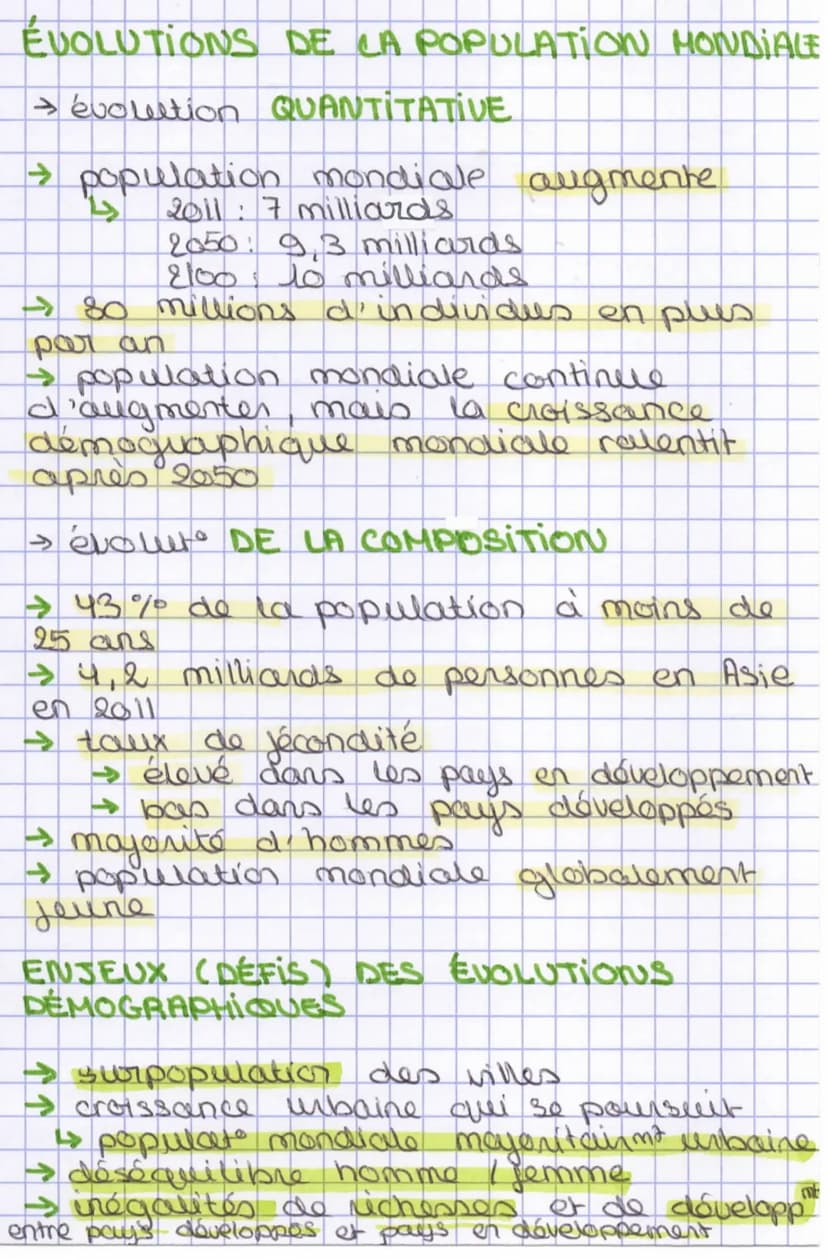 ÉVOLUTIONS DE LA POPULATION MONDIALE
→ évolution QUANTITATIVE
→ population mondiale augmente
↳ 2011 : 7 milliards
2050 : 9,3 milliards
2100 : 10 milliards
→ 80 millions d'individus en plus
par an
→ population mondiale continue
d'augmenter, mais la croissance
démographique mondiale ralentit
après 2050
→ évolut° DE LA COMPOSITION
→ 43% de la population à moins de
25 ans
→ 4,2 milliards de personnes en Asie
en 2011
→ taux de fécondité
→ élevé dans les pays en développement
→ bas dans les pays développés
→ majorité d'hommes
→ population mondiale globalement
jeune
ENJEUX (DÉFIS) DES ÉVOLUTIONS
DÉMOGRAPHIQUES
→ surpopulation des villes
→ croissance urbaine qui se poursuit
↳ populat° mondiale majoritairmt urbaine
→ déséquilibre homme / femme
→ inégalités de richesses et de développmt
entre pays développés et pays en développement